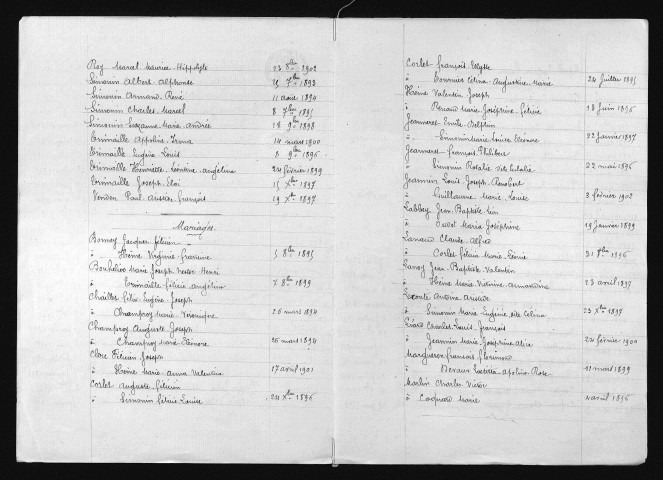 Roy Marcel Maurice Hippolyte 23 8bre 1902
Simonin Albert Alphonse 15 7bre 1893
Simonin Armand René 11 août 1894
Simonin Charles Marcel 8 7bre 1895
Simonin Suzanne Marie Andrée 18 9bre 1898
Trimaille Appoline Irma 14 mars 1900
Trimaille Eugène Louis 8 9bre 1896
Trimaille Henriette Léonine Angéline 24 février 1899
Trimaille Joseph Eloi 15 Xbre 1897
Verdon Paul François 19 Xbre 1897
Mariages
Jacques félicien
à Hène Virginie françine 5 8bre 1895
Marie Joseph Nestor Henri
à Trimaille félicie Angéline 7 8bre 1899
Chaillet félix Eugène Joseph
à Champroy Marie Véronique 26 mars 1894
Champroy Auguste Joseph
à Champroy Marie Eléonore 26 mars 1894
Clerc Félicien Joseph
à Hène Marie Anna Valentine 17 avril 1901
Corlet Auguste félicien
à Simonin félicie Louise 24 Xbre 1896
Corlet françois Ulysse
à Tournier Célina Augustine Marie 24 Juillet 1895
Hène Valentin Joseph
à Renaud Marie Joséphine félicie 18 Juin 1896
Jeanneret Emile Delphin
à Simonin Marie Louise Eléonore 22 Janvier 1897
Jeanneret françois Philibert
à Simonin Rosalie dite Eulalie 22 mai 1896
Jeannin Louis Joseph
à Guillaume Marie Louise 3 février 1902
Labbey Jean Baptiste Léon
à Oudot Marie Joséphine 19 Janvier 1899
Lanaud Claude Alfred
à Corlet félicie Marie Léonie 31 8bre 1896
Lanoy Jean Baptiste Valentin
à Hène Marie Victorine Armandine 23 avril 1897
Lecomte Antoine Aristide
à Simonin Marie Eugénie dite Célina 23 Xbre 1897
Liard Charles Louis françois
à Jeannin Marie Joséphine Alice 24 février 1900
Margueron françois florimond
à Devaux Appoline Rose 11 mars 1899
Martin Charles Victor
à Coquard Marie 4 avril 1896